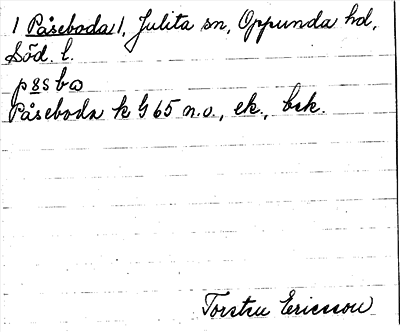 1 Påseboda 1, Julita sn, Oppunda hd,
Söd. l.
påsbω
Påseboda k G 65 n.o., ek., bek.
Torsten Ericsson